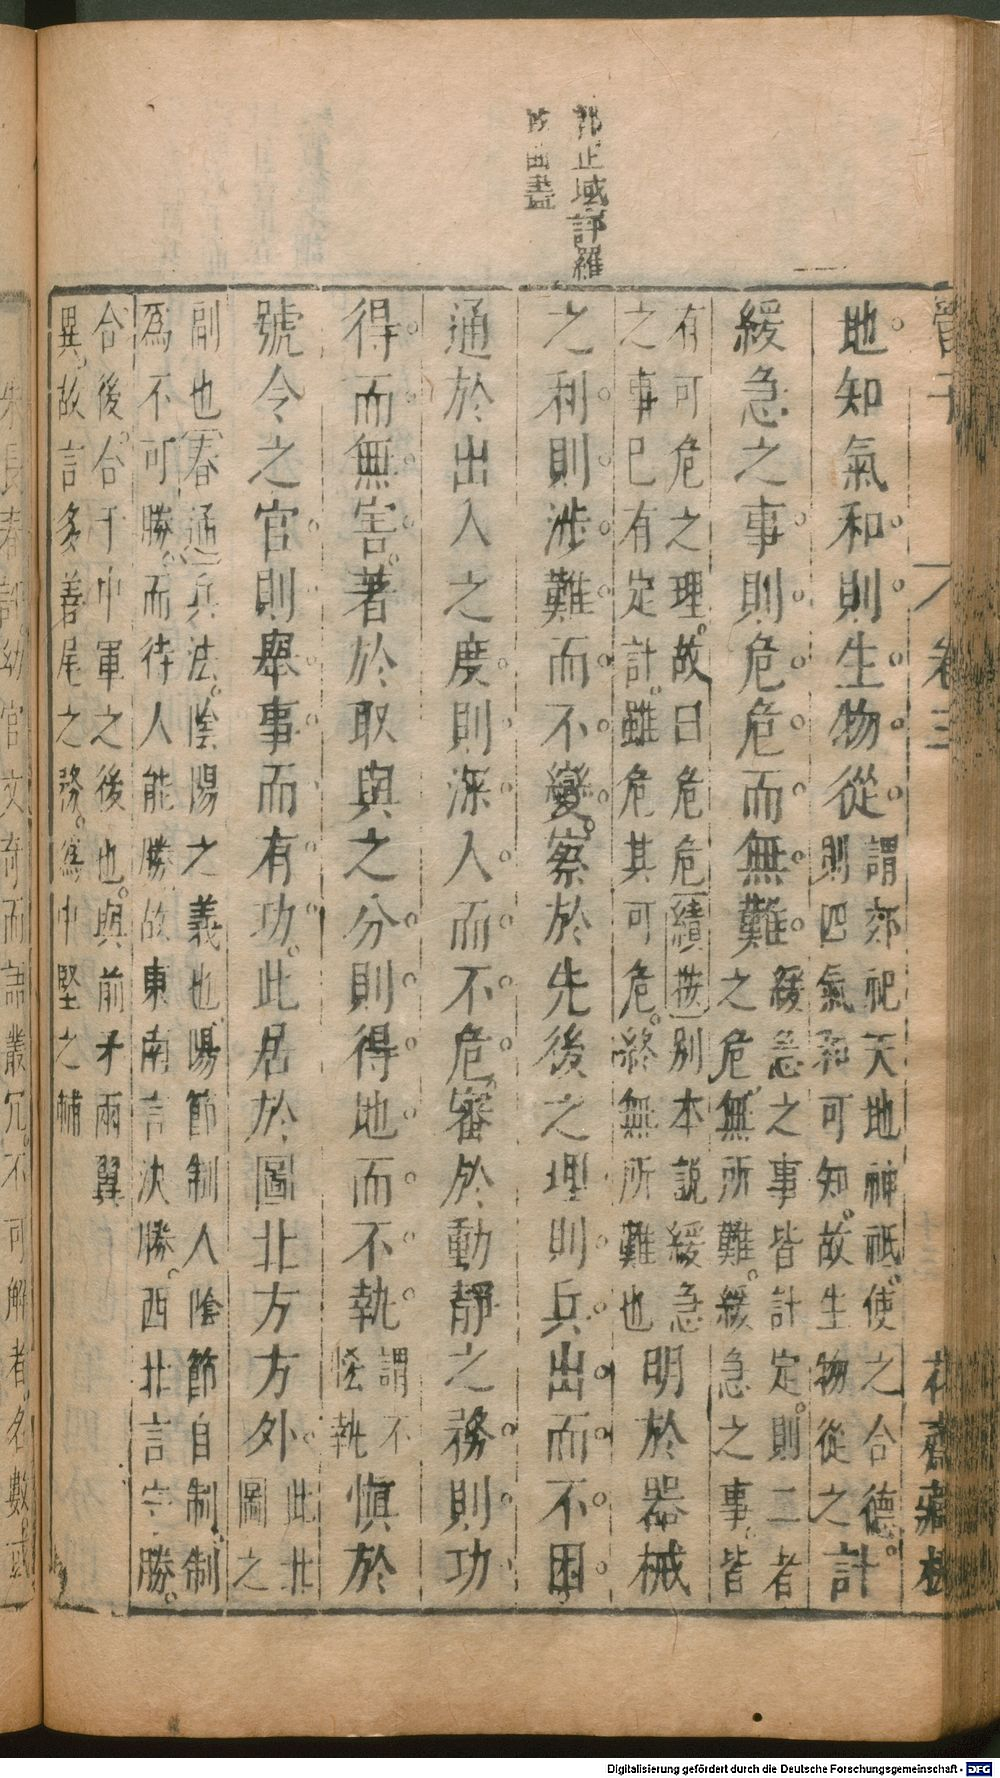 郭正域評羅
曲盡
管子
卷三
花齋藏板
地知氣和則生物從謂郊祀天地神祗使之合德
則四氣和可知故生物從之計
緩急之事則危危而無難緩急之事皆計定則二者
之危無所難緩急之事皆
有可危之理故曰危危績按別本説緩急
之事已有定計雖危其可危終無所難也明於器械
之利則涉難而不變察於先後之理則兵出而不困
通於出入之度則深入而不危審於動靜之務則功
得而無害著於取與之分則得地而不執謂不
恡執慎於
號令之官則舉事而有功此居於圖北方方外此北
圖之
副也春通兵法陰陽之義也陽節制人陰節自制制
為不可勝而待人能勝故東南言決勝西北言守勝
合後合于中軍之後也與前矛兩翼
異故言多善尾之務為中堅之輔
朱長春評幼官文奇而語叢冗不可解者名數或
Digitalisierung gefördert durch die Deutsche Forschungsgemeinschaft - DFG